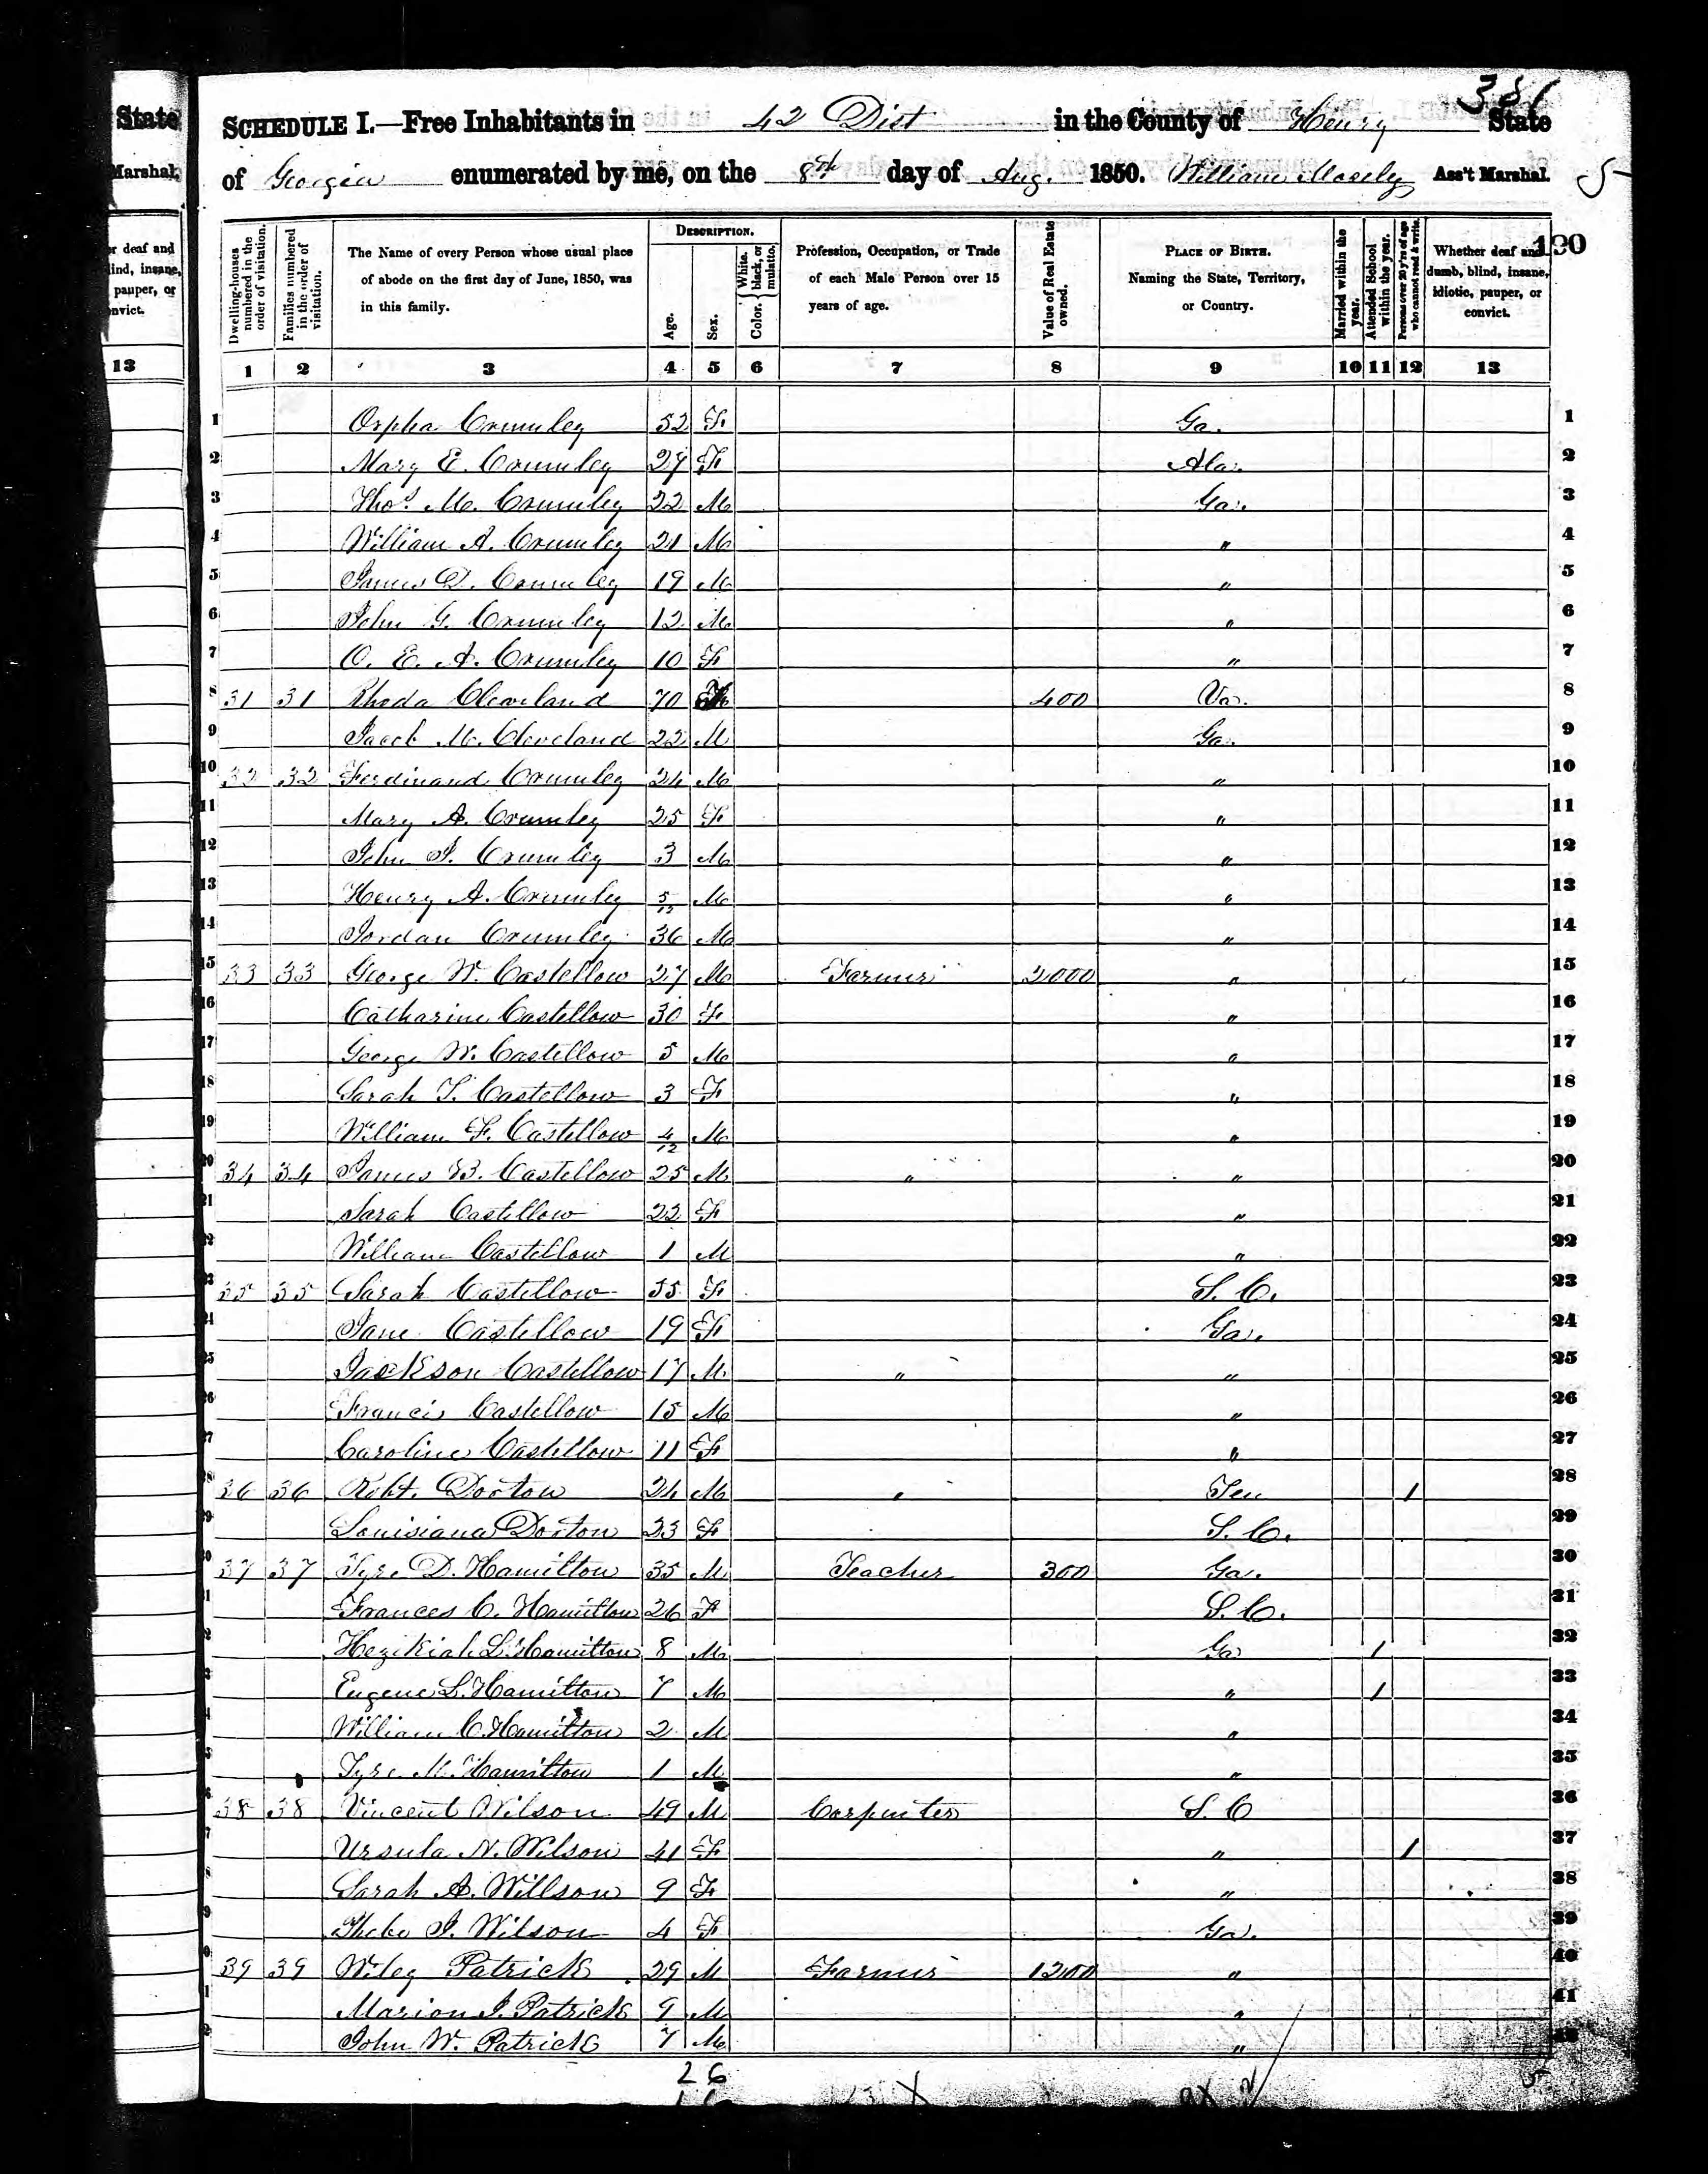 State
Marshal.
r deaf and
lind, insane,
pauper, or
nvict.
13
381
SCHEDULE I.—Free Inhabitants in 42 Dist in the County of Henry State
of Georgia enumerated by me, on the 8th day of Aug. 1850. William Mosely Ass't Marshal. 5
190
Dwelling-houses numbered in the order of visitation.
Families numbered in the order of visitation.
The Name of every Person whose usual place of abode on the first day of June, 1850, was in this family.
DESCRIPTION.
Age.
Sex.
Color. White, black, or mulatto.
Profession, Occupation, or Trade of each Male Person over 15 years of age.
Value of Real Estate owned.
PLACE OF BIRTH. Naming the State, Territory, or Country.
Married within the year.
Attended School within the year.
Persons over 20 y'rs of age who cannot read & write.
Whether deaf and dumb, blind, insane, idiotic, pauper, or convict.
1 2 3 4 5 6 7 8 9 10 11 12 13
1 Orpha Crumley 52 F Ga. 1
2 Mary E. Crumley 27 F Ala. 2
3 Thos. M. Crumley 22 M Ga. 3
4 William A. Crumley 21 M " 4
5 James D. Crumley 19 M " 5
6 John G. Crumley 12 M " 6
7 O. E. A. Crumley 10 F " 7
8 31 31 Rhoda Cleveland 70 400 Va. 8
9 Jacob M. Cleveland 22 M Ga. 9
10 32 32 Ferdinand Crumley 24 M " 10
11 Mary A. Crumley 25 F " 11
12 John J. Crumley 3 M " 12
13 Henry A. Crumley 5/12 M " 13
14 Jordan Crumley 36 M " 14
15 33 33 George W. Castellow 27 M Farmer 2000 " 15
16 Catharine Castellow 30 F " 16
17 George W. Castellow 5 M " 17
18 Sarah T. Castellow 3 F " 18
19 William F. Castellow 4/12 M " 19
20 34 34 James B. Castellow 25 M " " 20
21 Sarah Castellow 22 F " 21
22 William Castellow 1 M " 22
23 35 35 Sarah Castellow 55 F S. C. 23
24 Jane Castellow 19 F Ga. 24
25 Jackson Castellow 17 M " " 25
26 Francis Castellow 15 M " 26
27 Caroline Castellow 11 F " 27
28 36 36 Robt. Dorton 24 M " Ten 1 28
29 Louisiana Dorton 23 F S. C. 29
30 37 37 Tyre D. Hamilton 35 M Teacher 300 Ga. 30
31 Frances C. Hamilton 26 F S. C. 31
32 Hezikiah L. Hamilton 8 M Ga 1 32
33 Eugene L. Hamilton 7 M " 1 33
34 William C. Hamilton 2 M " 34
35 Tyre M. Hamilton 1 M " 35
36 38 38 Vincent Wilson 49 M Carpenter S. C 36
37 Ursula N. Wilson 41 F " 1 37
38 Sarah A. Willson 9 F " 38
39 Phebe J. Wilson 4 F Ga. 39
40 39 39 Wiley Patrick 29 M Farmer 1200 " 40
41 Marion J. Patrick 9 M " 41
42 John W. Patrick 7 M " 42
26